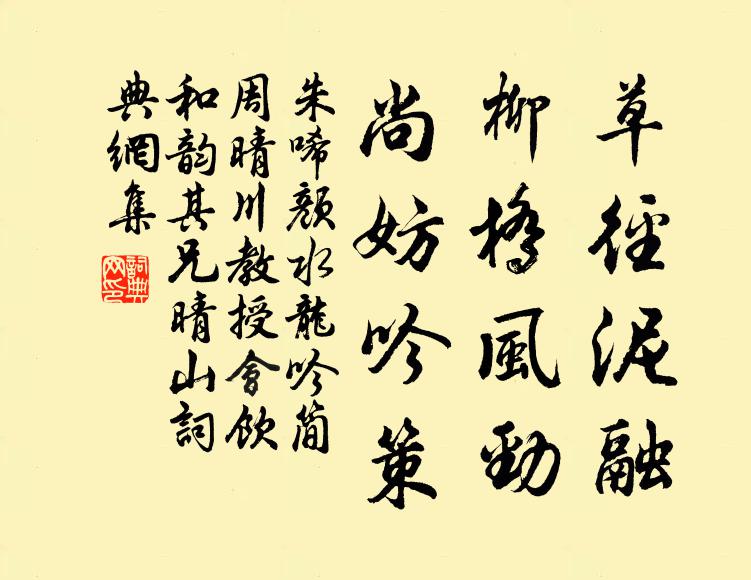 草徑泥融
柳橋風勁
尚妨吟策
朱唏顏水龍吟簡
周晴川教授會飲
和韵其兄晴山詞
典網集
詞典網印